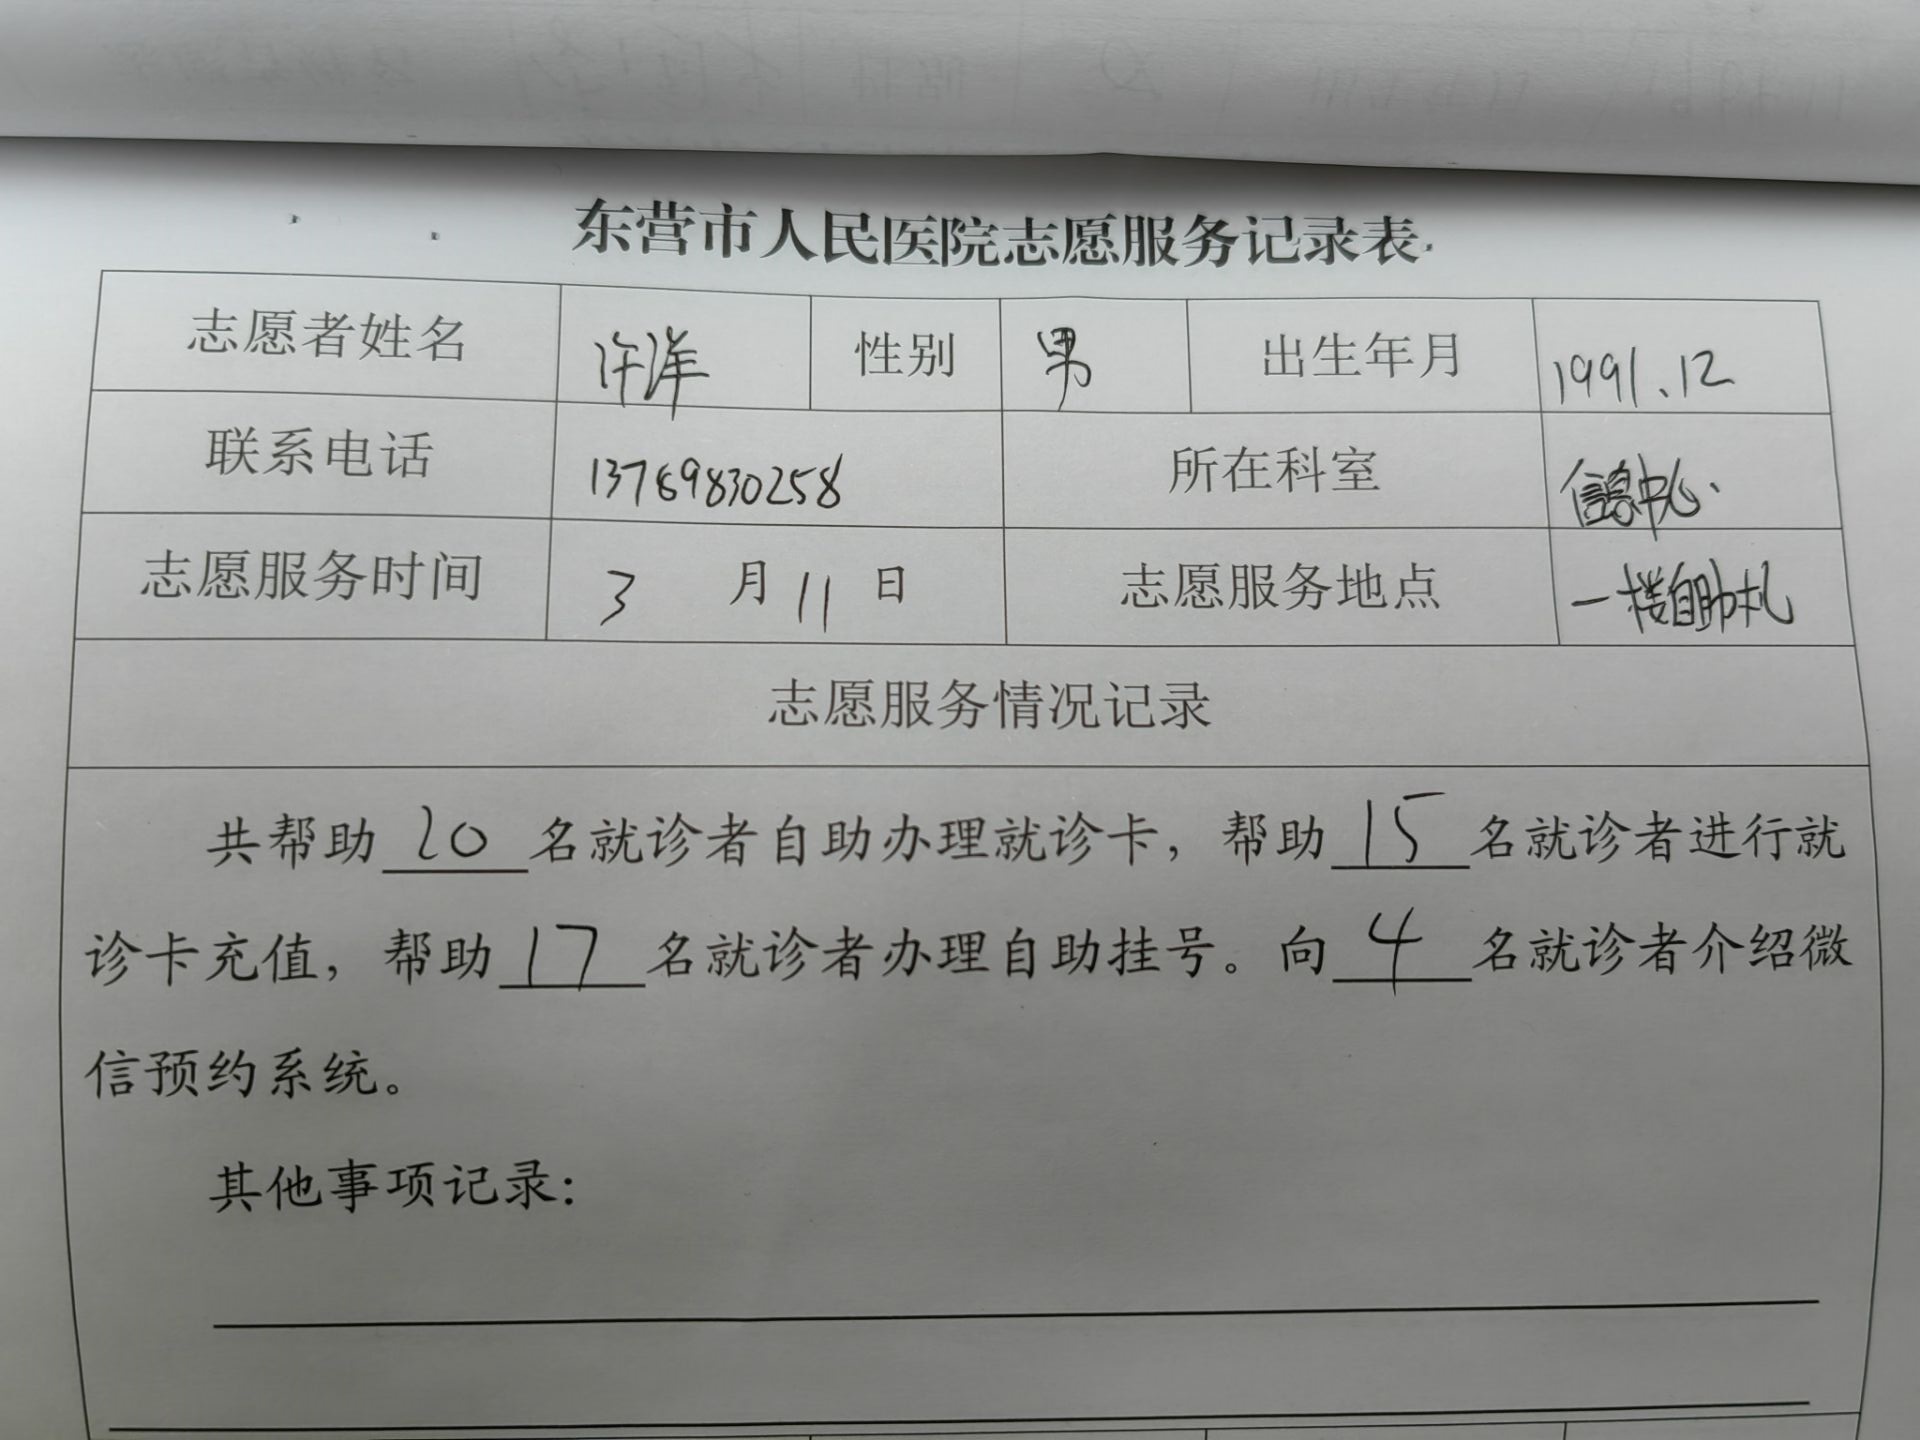 东营市人民医院志愿服务记录表
志愿者姓名 许洋 性别 男 出生年月 1991.12
联系电话 13769830258 所在科室 信息中心
志愿服务时间 3 月 11 日 志愿服务地点 一楼自助机
志愿服务情况记录
共帮助 20 名就诊者自助办理就诊卡，帮助 15 名就诊者进行就
诊卡充值，帮助 17 名就诊者办理自助挂号。向 4 名就诊者介绍微
信预约系统。
其他事项记录：